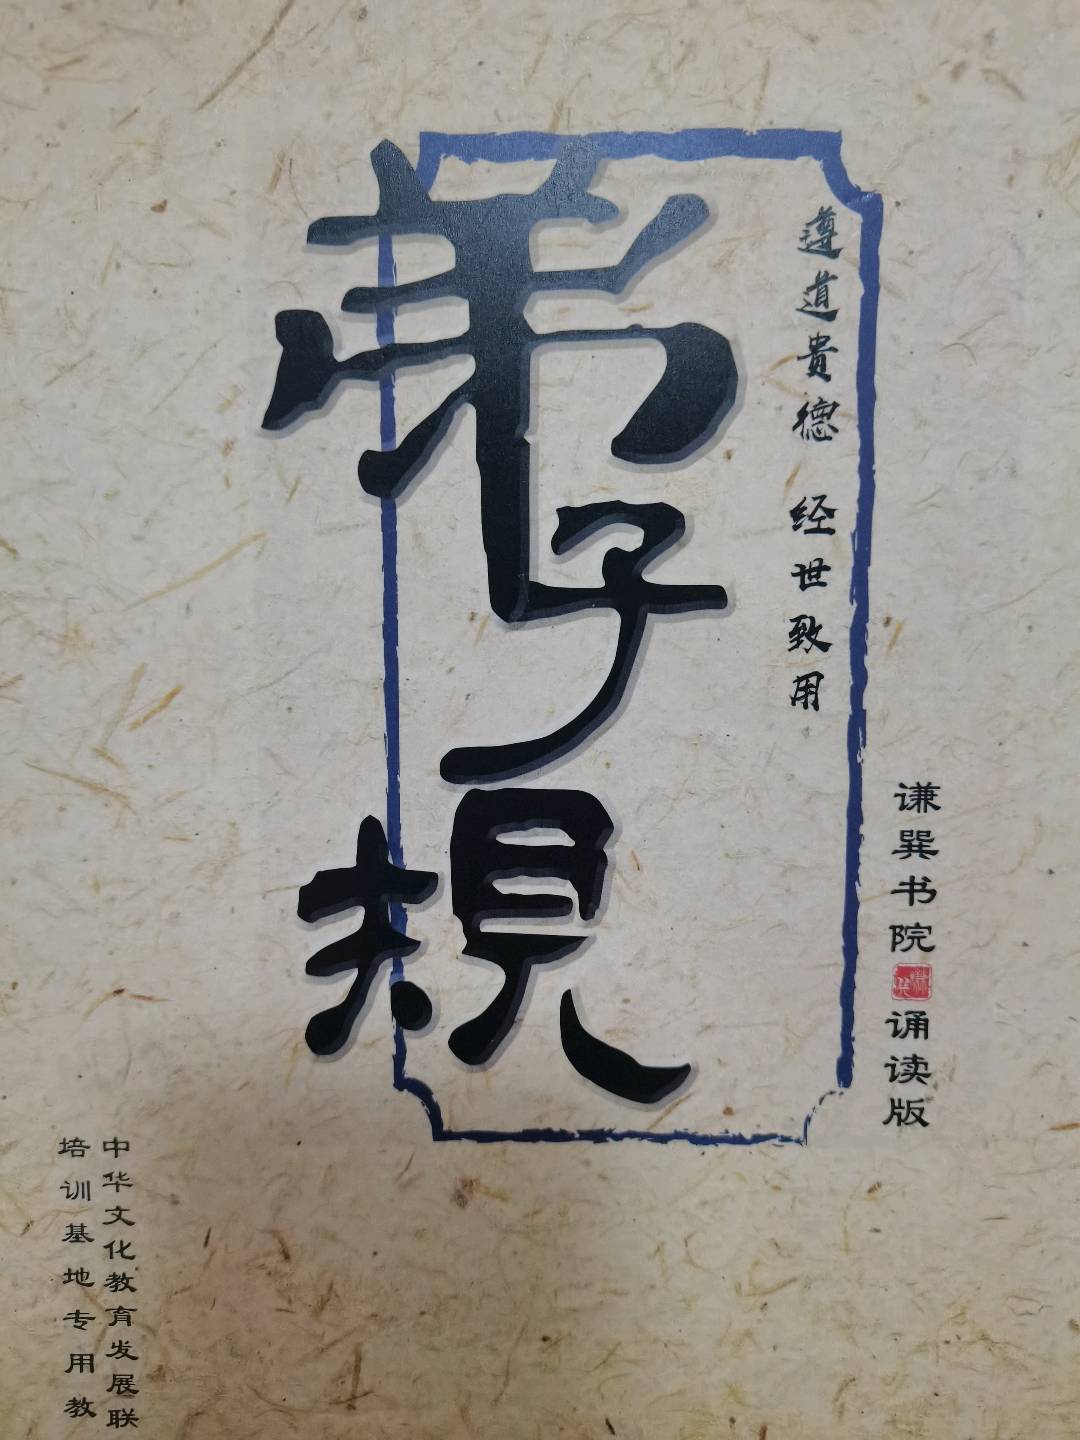 遵道贵德 经世致用
弟子规
谦巽书院
诵读版
中华文化教育发展联
培训基地专用教